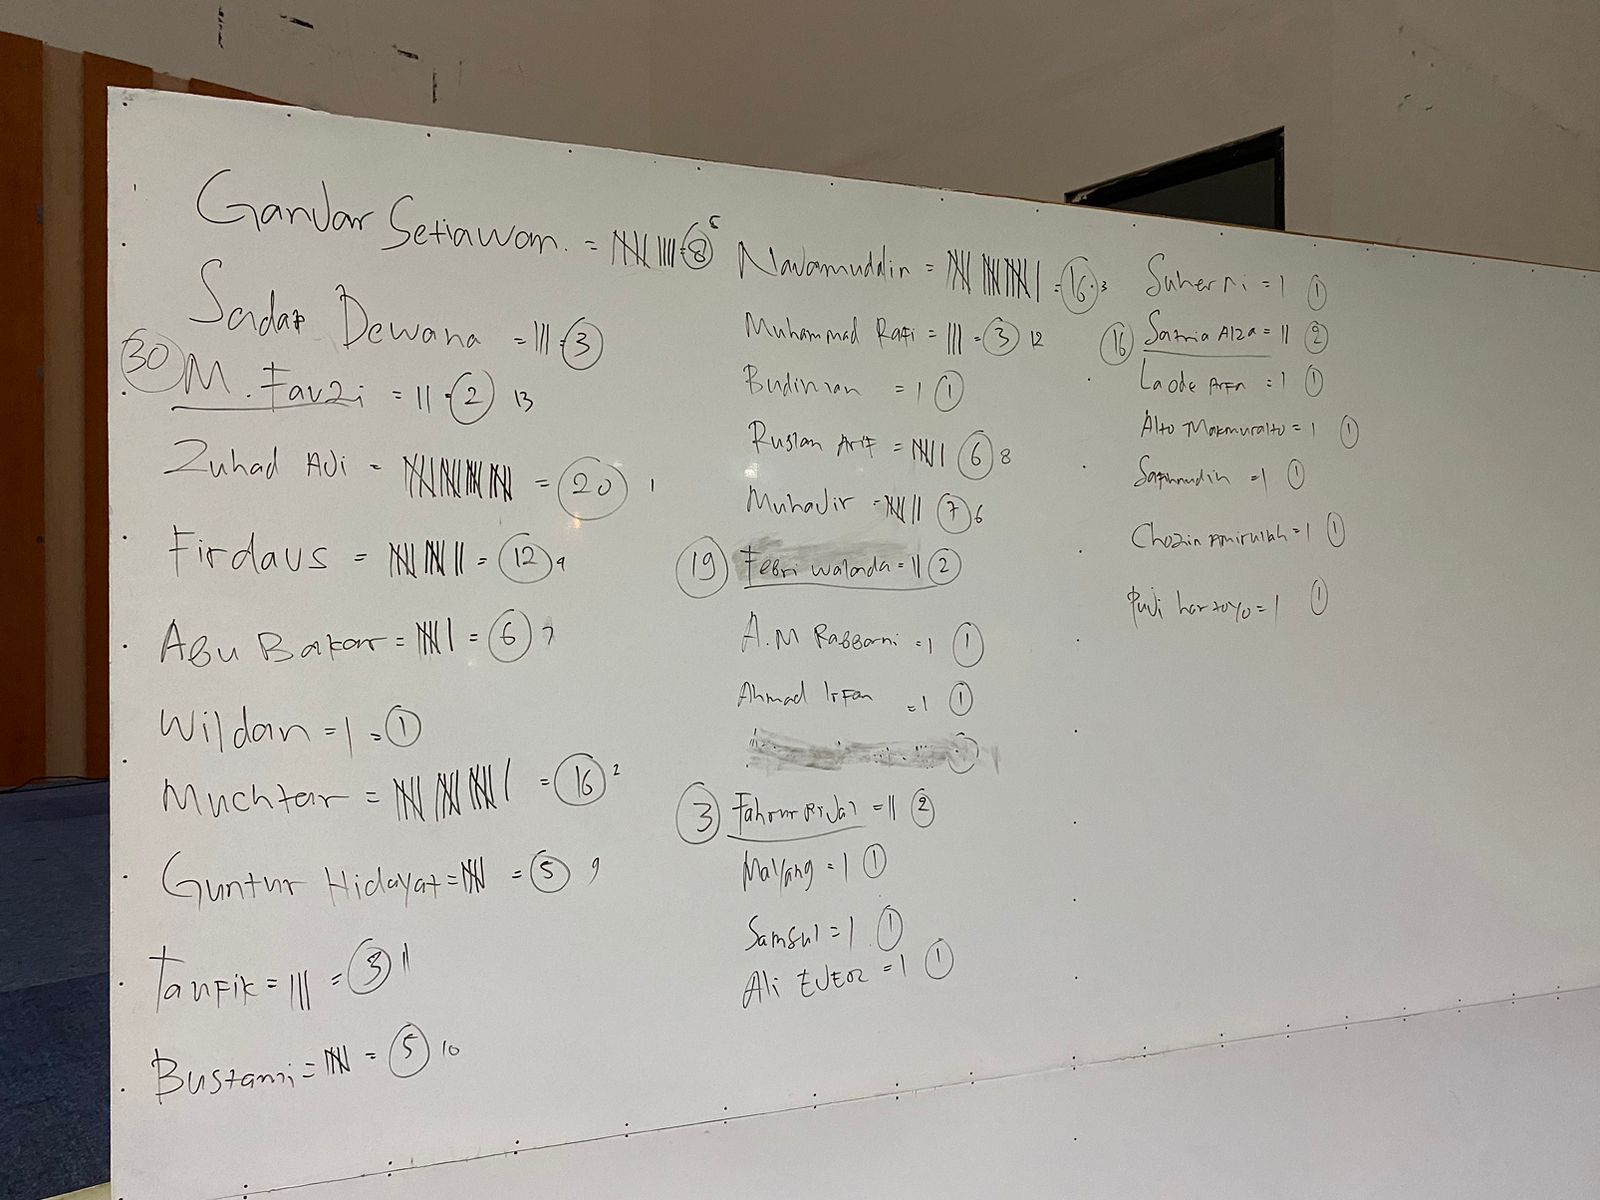 Ganjar Setiawan. = |||| |||| = 8 5
Sadar Dewana = ||| = 3
30 M. Fauzi = || = 2 13
Zuhad Adi = |||| |||| |||| |||| = 20 1
Firdaus = |||| |||| || = 12 4
Abu Bakar = |||| | = 6 7
Wildan = | = 1
Muchtar = |||| |||| |||| | = 16 2
Guntur Hidayat = |||| = 5 9
Taufik = ||| = 3 11
Bustami = |||| = 5 10
Navamuddin = |||| |||| |||| | = 16 3
Muhammad Rafi = ||| = 3 12
Budiman = | 1
Ruslan Arif = |||| | 6 8
Muhajir = |||| || 7 6
19 Febri Walanda = || 2
A.M Rabbani = | 1
Ahmad Irfan = | 1
3 Fahrur Rijal = || 2
Malyang = | 1
Samsul = | 1
Ali = | 1
Suherni = | 1
16 Satria Alza = || 2
Laode Arfa = | 1
Alto Makmuralto = | 1
Safinnudin = | 1
Chozin Amirulah = | 1
Puji hartoyo = | 1